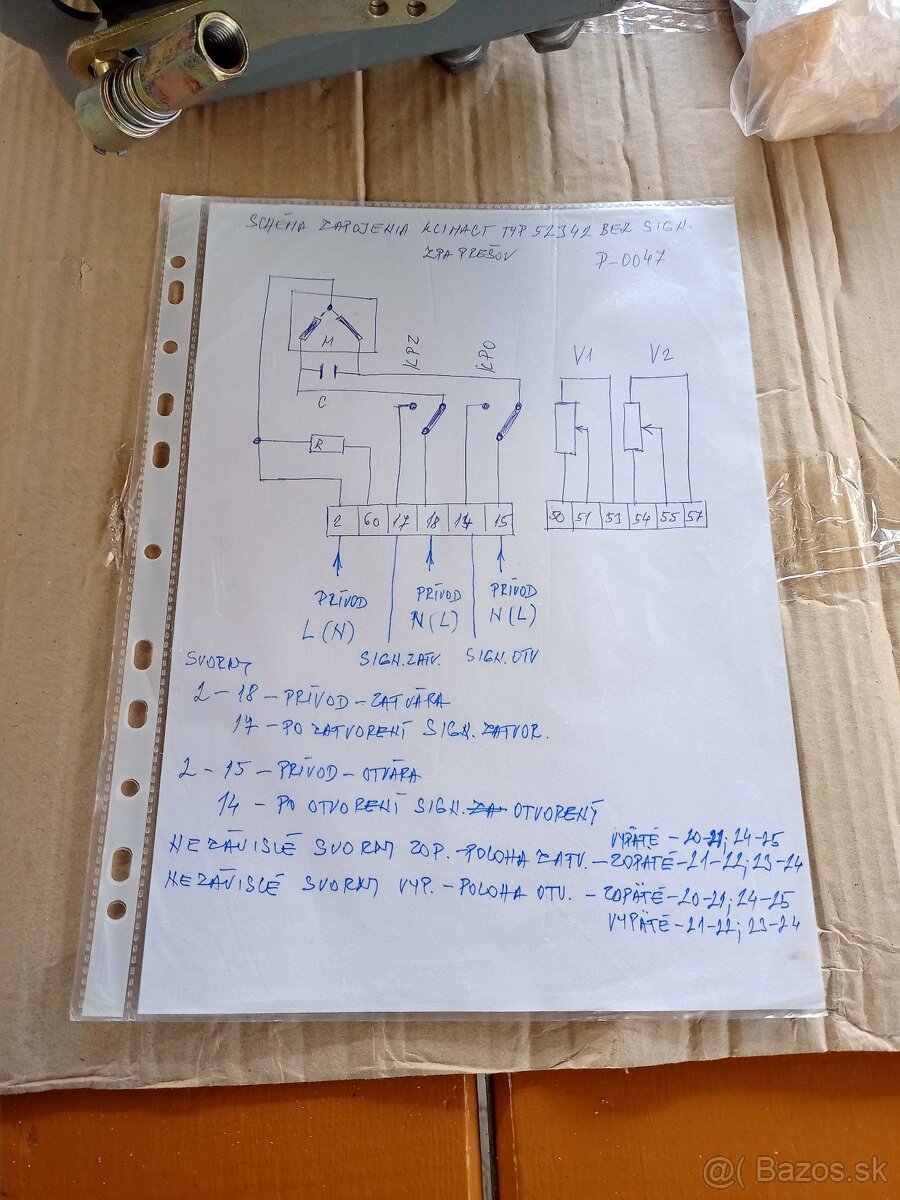 SCHÉMA ZAPOJENIA KLIMACT TYP 52342 BEZ SIGN.
ZPA PREŠOV P-0047
M
KPZ
KPO
V1 V2
C
R
2 60 17 18 14 15
50 51 53 54 55 57
PRÍVOD PRÍVOD PRÍVOD
L (N) N (L) N (L)
SIGN. ZATV. SIGN. OTV
SVORKY
2 - 18 - PRÍVOD - ZATVÁRA
17 - PO ZATVORENÍ SIGN. ZATVOR.
2 - 15 - PRÍVOD - OTVÁRA
14 - PO OTVORENÍ SIGN. ZA OTVORENÝ
VYPÄTÉ - 20-21; 24-25
NEZÁVISLÉ SVORKY ZOP. - POLOHA ZATV. - ZOPÄTÉ - 21-22; 23-24
NEZÁVISLÉ SVORKY VYP. - POLOHA OTV. - ZOPÄTÉ - 20-21; 24-25
VYPÄTÉ - 21-22; 23-24
@( Bazos.sk